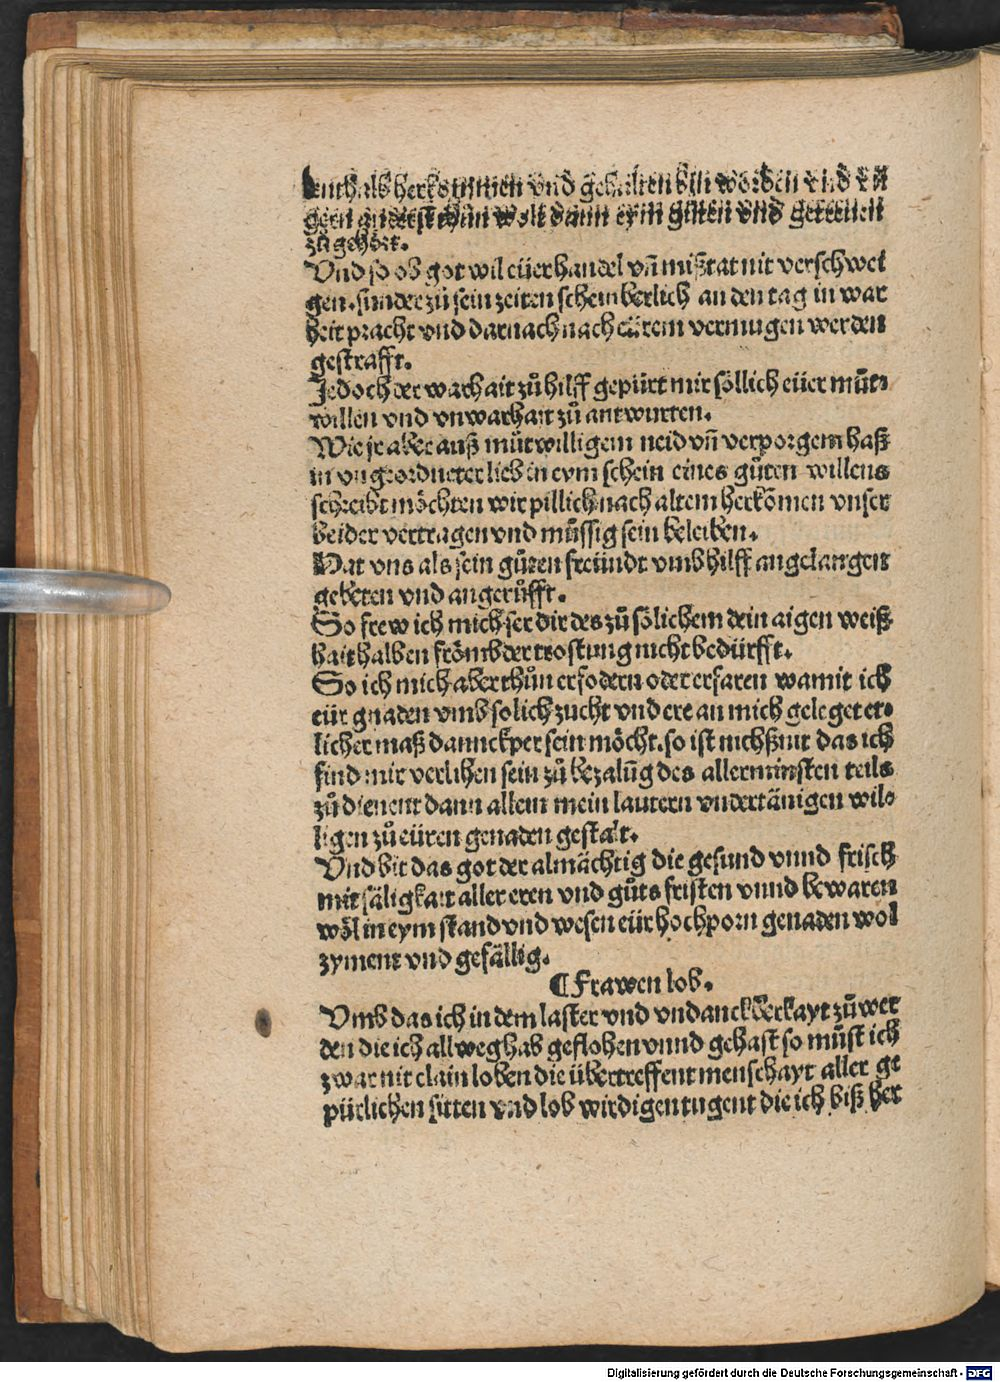 enthalb herkommen vnd gehalten bin worden vnd vn
gern anderst thun wolt dann eym gůten vnd getreuen
zů gehört.
Vnd so ob got wil eüer handel vñ mißtat nit verschwei
gen. sunder zů sein zeiten scheinberlich an den tag in war
heit pracht vnd darnach nach eürem vermugen werden
gestrafft.
Jedoch der warhait zů hilff gepürt mir söllich eüer můt⸗
willen vnd vnwarhait zů antwurten.
Wie ir aber auß můtwilligem neid vñ verporgem haß
in vngeordneter lieb in eym schein eines gůten willens
schreibt möchten wir pillich nach altem herkõmen vnser
beider vertragen vnd müssig sein beleiben.
Hat vns als sein gůten freündt vmb hilff angelangen
gebeten vnd angerůfft.
So frew ich mich ser dir des zů sölichem dein aigen weiß
hait halben frömbder trostung nicht bedürfft.
So ich mich aber thůn erfodern oder erfaren wamit ich
eür gnaden vmb solich zucht vnd ere an mich geleget er⸗
licher maß danckper sein möcht. so ist nichß mir das ich
find mir verlihen sein zů bezalũg des allerminsten teils
zů dienent dann allein mein lautern vndertänigen wil⸗
ligen zů eüren genaden gestalt.
Vnd bit das got der almächtig die gesund vnnd frisch
mit säligkait aller eren vnd gůts fristen vnnd bewaren
wöl in eym stand vnd wesen eür hochporn genaden wol
zyment vnd gefällig.
¶ Frawen lob.
Vmb das ich in dem laster vnd vndanckberkayt zů wer
den die ich allweg hab geflohen vnnd gehast so můst ich
zwar nit clain loben die übertreffent menschayt aller ge
pürlichen sitten vnd lob wirdigen tugent die ich biß her
Digitalisierung gefördert durch die Deutsche Forschungsgemeinschaft - DFG